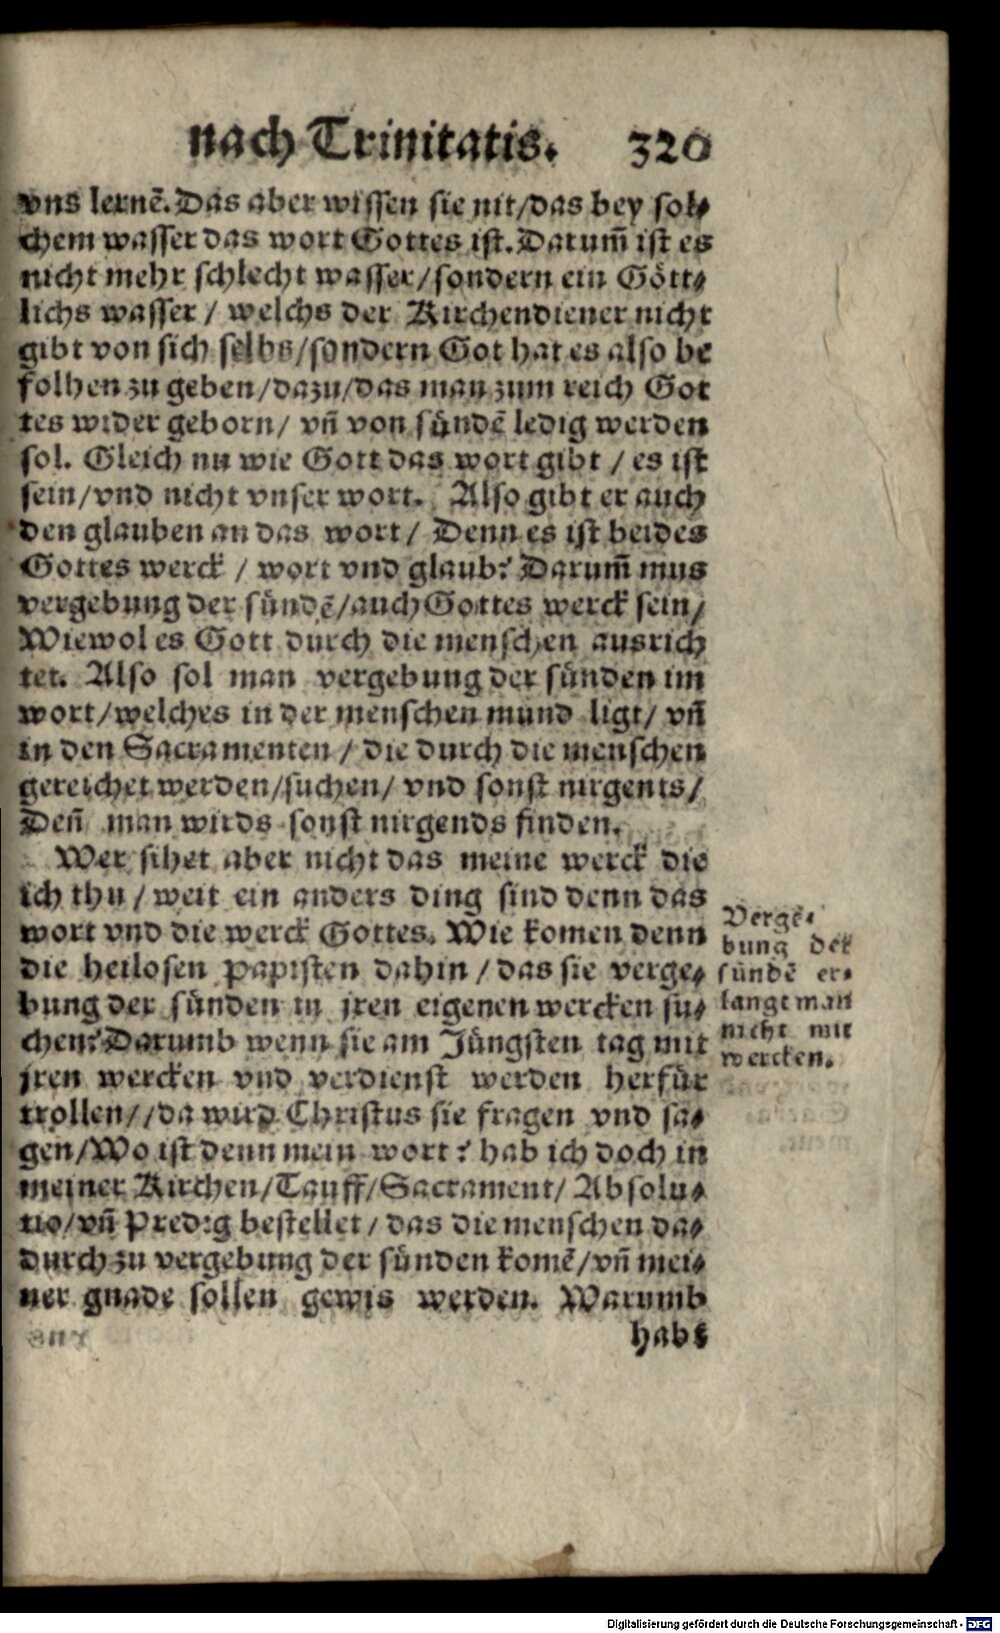 nach Trinitatis. 320
vns lernẽ. Das aber wissen sie nit/das bey sol⸗
chem wasser das wort Gottes ist. Darum̃ ist es
nicht mehr schlecht wasser/sondern ein Gött⸗
lichs wasser / welchs der Kirchendiener nicht
gibt von sich selbs/sondern Got hat es also be
folhen zu geben/dazu/das man zum reich Got
tes wider geborn/ vñ von sündẽ ledig werden
sol. Gleich nu wie Gott das wort gibt / es ist
sein/vnd nicht vnser wort. Also gibt er auch
den glauben an das wort/ Denn es ist beides
Gottes werck / wort vnd glaub? Darum̃ mus
vergebung der sündẽ/auch Gottes werck sein/
Wiewol es Gott durch die menschen ausrich
tet. Also sol man vergebung der sünden im
wort/welches in der menschen mund ligt/ vñ
in den Sacramenten / die durch die menschen
gereichet werden/suchen/ vnd sonst nirgents/
Deñ man wirds sonst nirgends finden.
Wer sihet aber nicht das meine werck die
ich thu / weit ein anders ding sind denn das
wort vnd die werck Gottes. Wie komen denn
die heilosen Papisten dahin / das sie verge⸗
bung der sünden in jren eigenen wercken su⸗
chen? Darumb wenn sie am Jüngsten tag mit
jren wercken vnd verdienst werden herfür
trollen//da wird Christus sie fragen vnd sa⸗
gen/Wo ist denn mein wort? hab ich doch in
meiner Kirchen/Tauff/Sacrament/ Absolu⸗
tio/vñ Predig bestellet / das die menschen da⸗
durch zu vergebung der sünden komẽ/vñ mei⸗
ner gnade sollen gewis werden. Warumb
habt
Verge⸗
bung der
sündẽ er⸗
langt man
nicht mit
wercken.
Digitalisierung gefördert durch die Deutsche Forschungsgemeinschaft - DFG